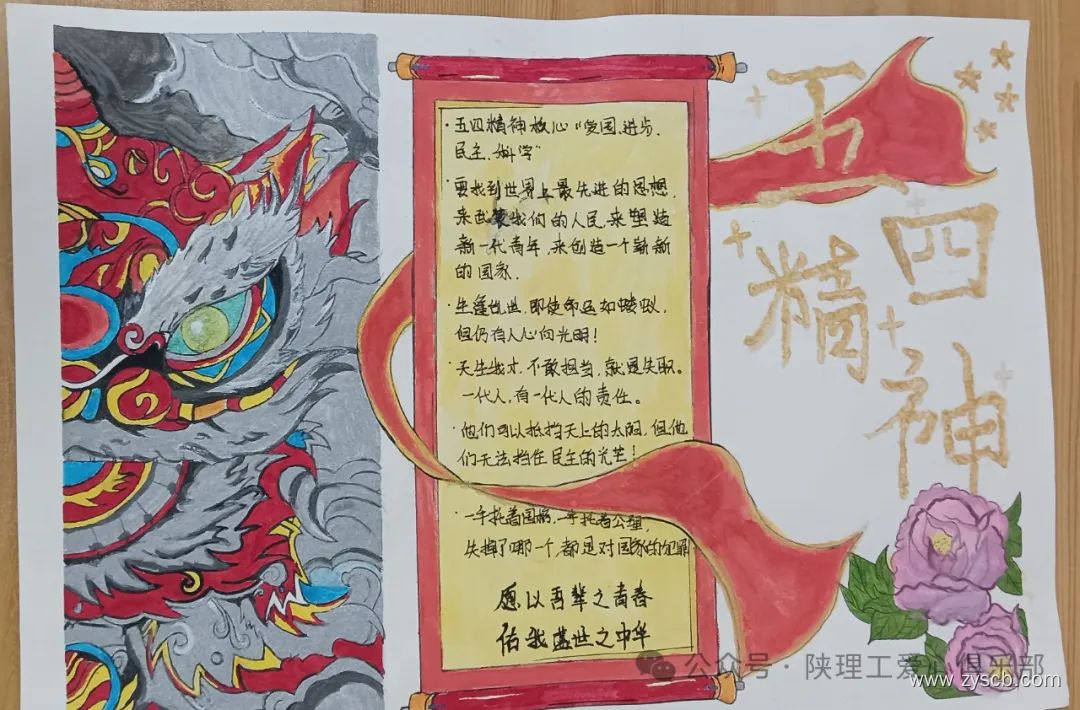 五四精神
·五四精神核心"爱国、进步、
民主、科学"
·要找到世界上最先进的思想,
来武装我们的人民,来塑造
新一代青年,来创造一个崭新
的国家.
·生逢乱世,即使命运如蝼蚁,
但仍有人心向光明!
·天生我才,不敢担当,就是失职。
一代人,有一代人的责任。
·他们可以抵挡天上的太阳,但他
们无法挡住民主的光芒!
·一手托着国格,一手托着公理,
失掉了哪一个,都是对国家的犯罪
愿以吾辈之青春
佑我盛世之中华
公众号·陕理工爱心俱乐部
www.zyscb.com